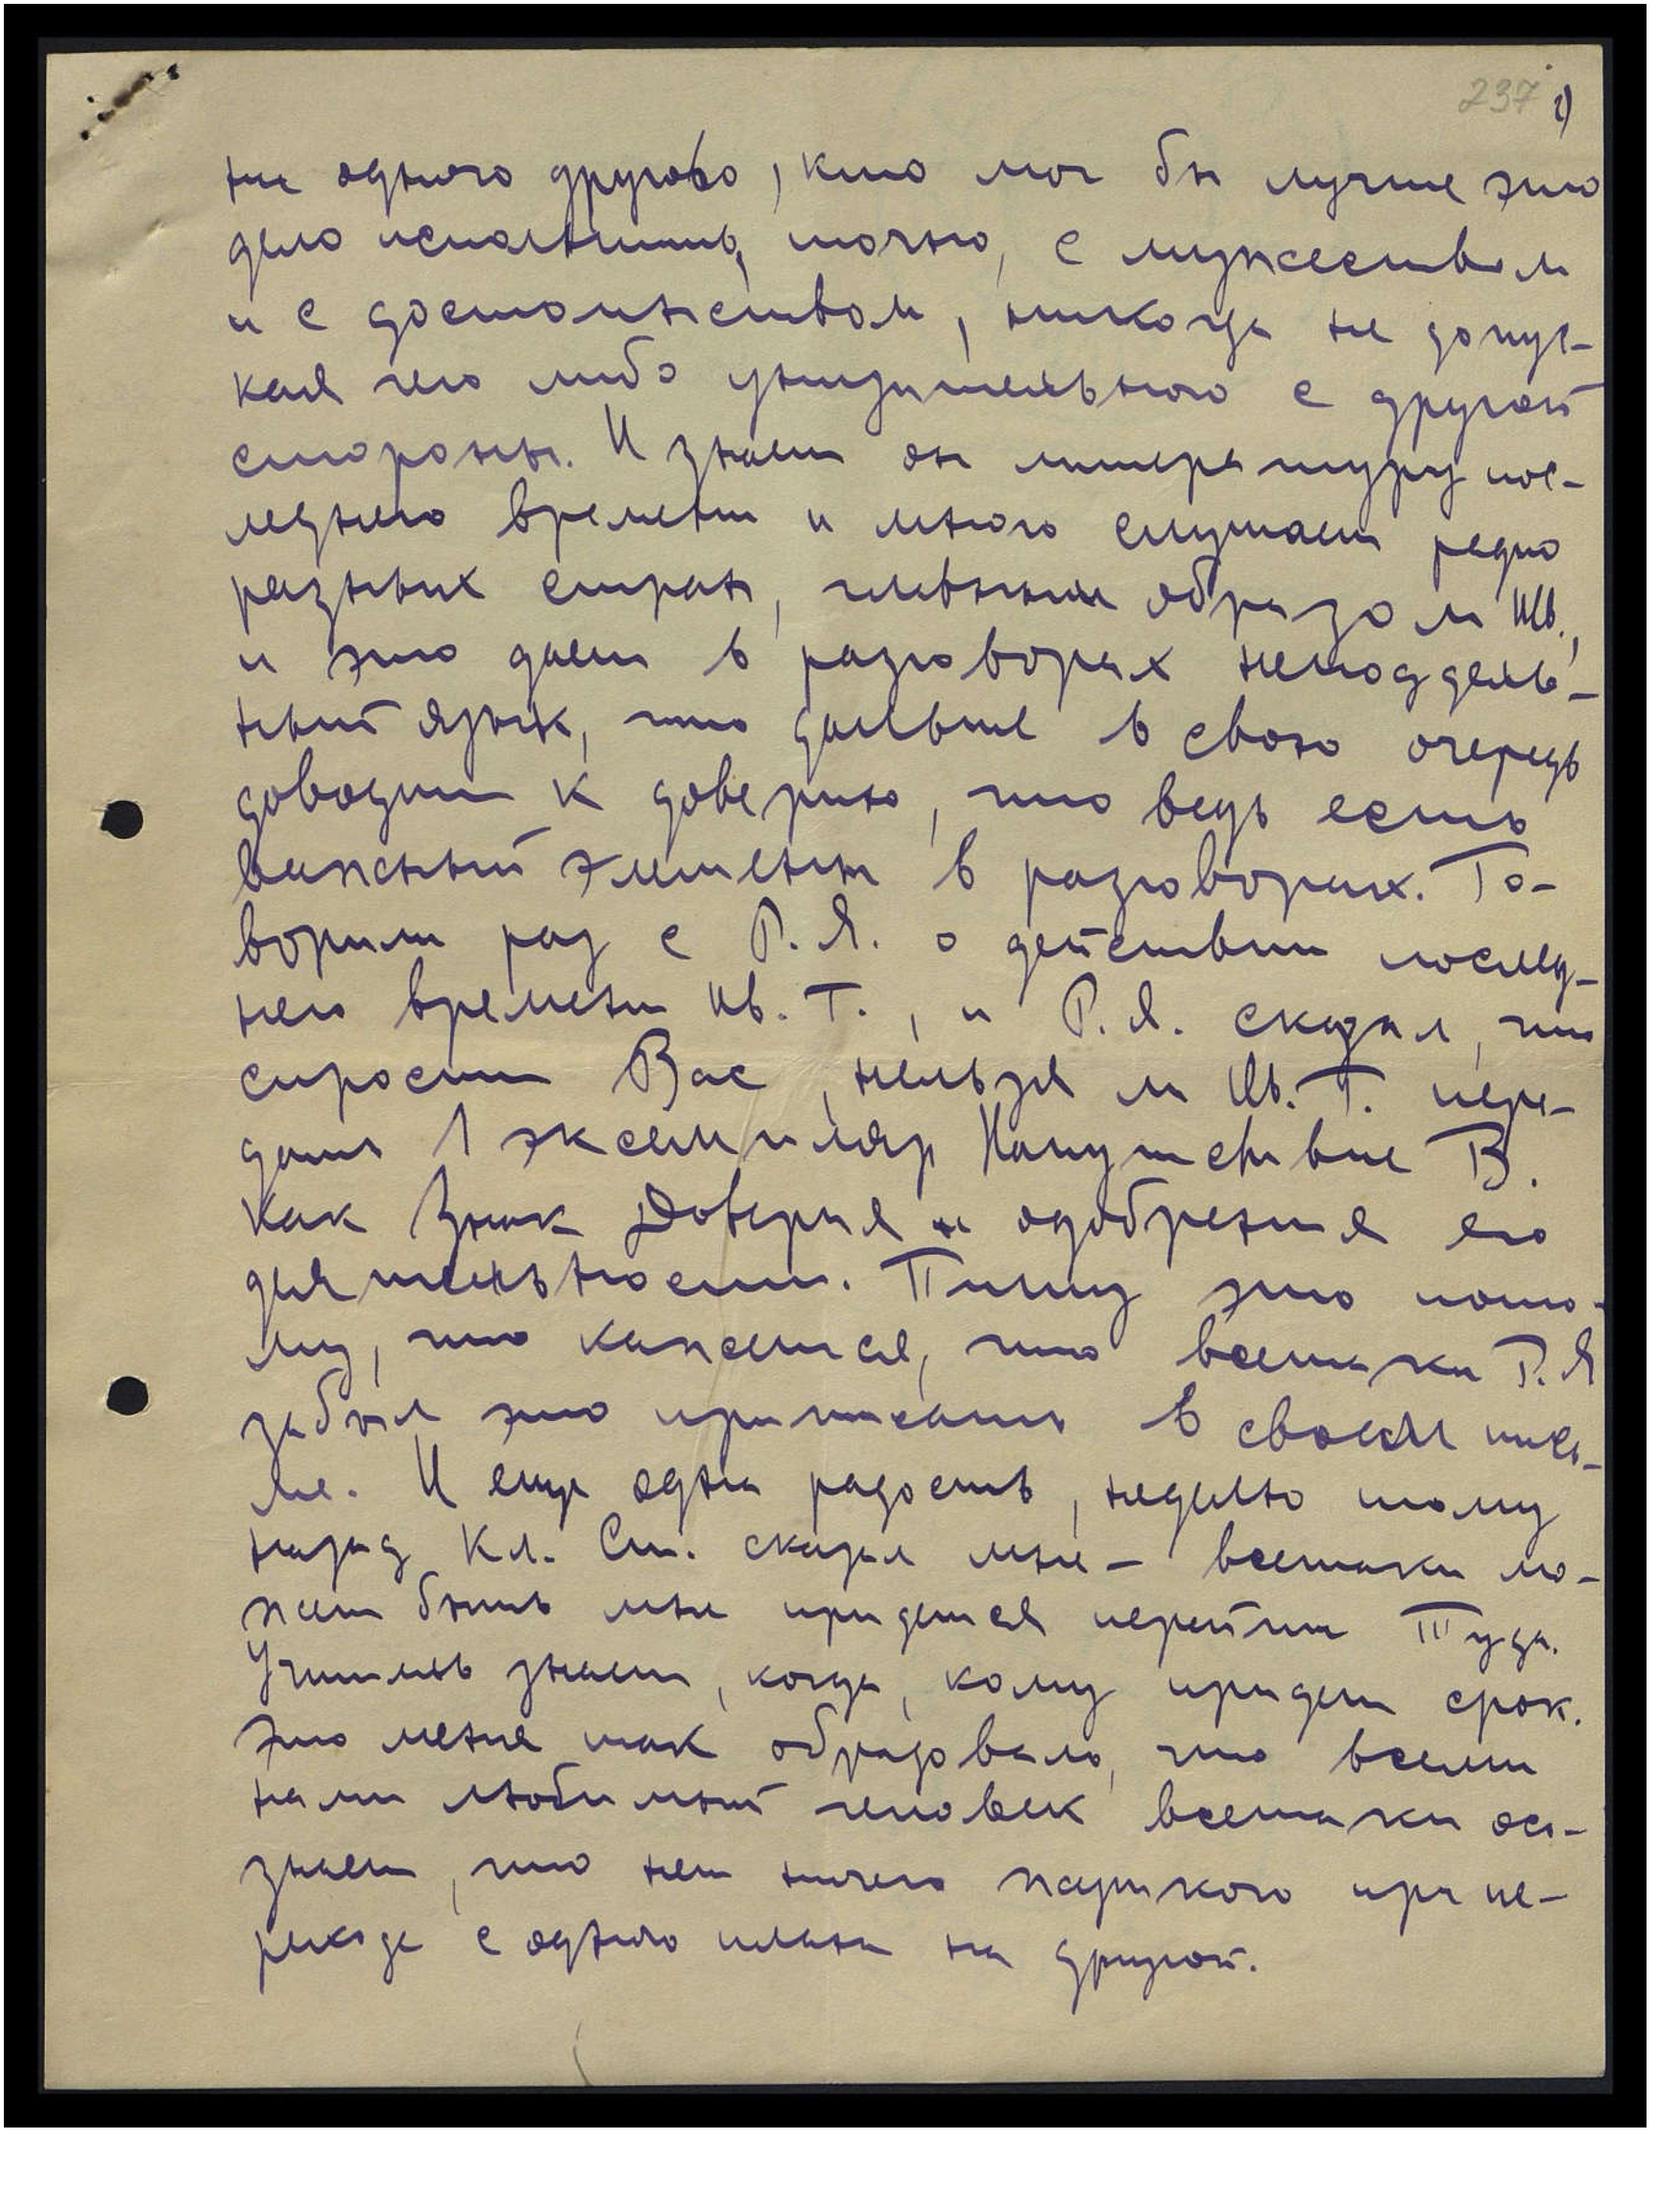 237 2)
не одного другово, кто мог бы лучше это
дело исполнить, точно, с мужеством
и с достоинством, никогда не допус-
кая чего либо унизительного с другой
стороны. И знает он литературу пос-
леднего времени и много слушает радио
разных стран, главным образом Шв.,
и это дает в разговорах неподдель-
ный язык, что дальше в свою очередь
доводит к доверию, что ведь есть
важный элемент в разговорах. Го-
ворили раз с Р.Я. о действии послед-
него времени Ив. Г., и Р.Я. сказал, что
спросит Вас, нельзя ли Ив. Г. пере-
дать 1 экземпляр Напутствие В.
как Знак Доверия и одобрения его
деятельности. Пишу это пото-
му, что кажется, что всетаки Р.Я
забыл это приписать в своем пись-
ме. И еще одна радость, неделю тому
назад Кл. Ст. сказал мне – всетаки мо-
жет быть мне придется перейти Туда.
Учитель знает, когда, кому придет срок.
Это меня так обрадовало, что всеми
нами любимый человек всетаки осо-
знает, что нет ничего жуткого при пе-
реходе с одного плана на другой.